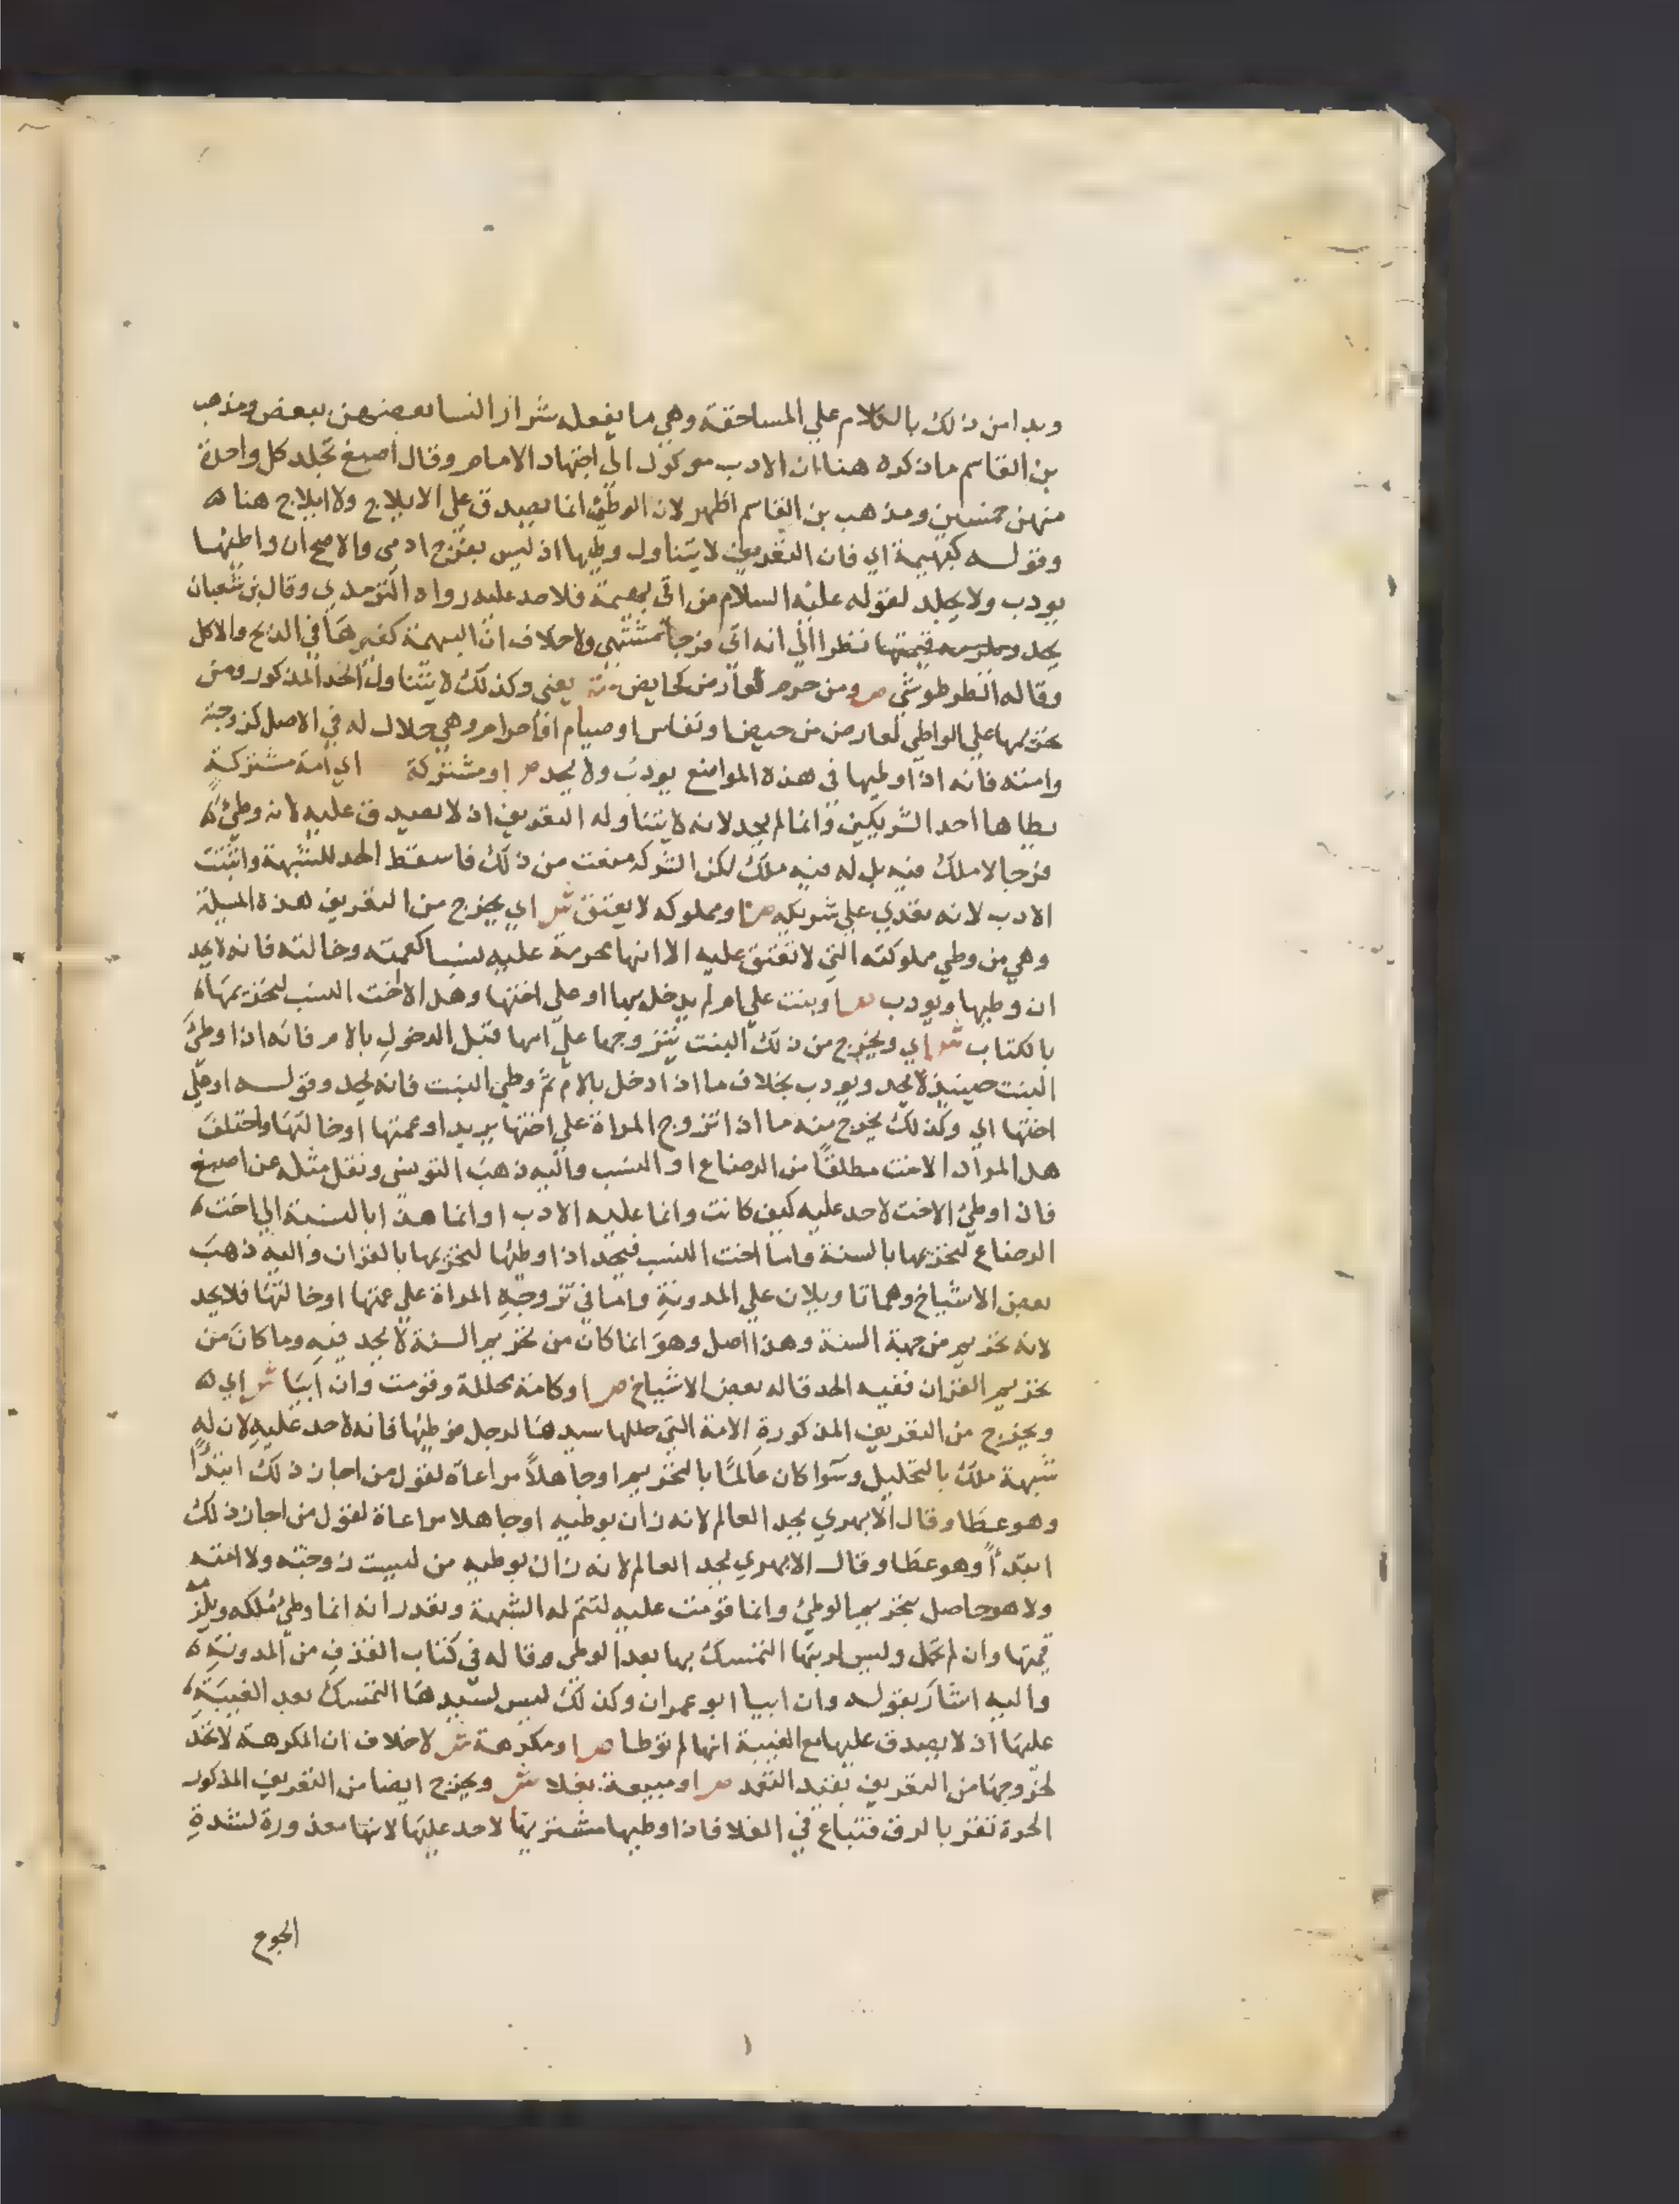 وبدا من ذلك بالكلام علي المساحقة وهي ما يفعله شرار النسا بعضهن ببعض ومذهب
بن القاسم ما ذكره هنا ان الادب موكول الي اجتهاد الامام وقال اصبغ تجلد كل واحدة
منهن خمسين ومذهب بن القاسم اظهر لان الوطئ انما يصدق علي الايلاج ولا ايلاج هنا ه
وقوله كبهيمة اي فان التعريف لا يتناول وطيها اذ ليس بفرج ادمي والاصح ان واطئها
يودب ولا يجلد لقوله عليه السلام من اتي بهيمة فلا حد عليه رواه الترمدي وقال بن شعبان
يحد قيمتها نظرا الي انه اتي فرجا مشتهي ولا خلاف ان البهيمة كغيرها في الذبح والاكل
وقاله الطرطوشي ص ومن حرم لعارض كحايض يعني وكذلك لا يتناول الحد المذكور ومن
تحريمها علي الواطي لعارض من حيض او نفاس او صيام او احرام وهي حلال له في الاصل كزوجته
وامته فانه اذا وطيها في هذه المواضع يودب ولا يحد ص او مشتركة اي امة مشتركة
يطاها احد الشريكين وانما لم يحد لانه لا يتناوله التعريف اذ لا يصدق عليه لانه وطئ ه
فرجا لا ملك فيه بل له فيه ملك لكن الشركة منعت من ذلك فاسقط الحد للشبهة واثبت
الادب لانه تعدي علي شريكه ص او مملوكه لا يعتق ش اي يخرج من التعريف هذه المسيلة
وهي من وطي مملوكته التي لا تعتق عليه الا انها محرمة عليه نسبا كعمته وخالته فانه لا يحد
ان وطيها ويودب ص او بنت علي ام لم يدخل بها او علي اختها وهل الا اخت النسب لتحريمها ه
بالكتاب ش اي ويخرج من ذلك البنت يتزوجها علي امها قبل الدخول بالام فانه اذا وطئ
البنت حينيذ لا يحد ويودب بخلاف ما اذا دخل بالام ثم وطي البنت فانه يحد وقوله او علي
اختها اي وكذلك يخرج منه ما اذا تزوج المراة علي اختها يريد او عمتها او خالتها واختلف
هل المراد الاخت مطلقا من الرضاع او النسب واليه ذهب التونسي ونقل مثله عن اصبغ
فاذا وطئ الاخت لا حد عليه كيف كانت وانما عليه الادب او انما هذا بالنسبة الي اخت ه
الرضاع لتحريمها بالسنة واما اخت النسب فيحد اذا وطئها لتحريمها بالقران واليه ذهب
بعض الاشياخ وهما تاويلان علي المدونة واما في تزوجه المراة علي عمتها او خالتها فلا يحد
لانه تحريم من جهة السنة وهذا اصل وهو انما كان من تحريم السنة لا يحد فيه وما كان من
تحريم القران ففيه الحد قاله بعض الاشياخ ص او كامة محللة وقومت وان ابيا ش اي ه
ويخرج من التعريف المذكورة الامة التي حللها سيدها لرجل فوطيها فانه لا حد عليه لان له
شبهة ملك بالتحليل وسوا كان عالما بالتحريم او جاهلا مراعاة لقول من اجاز ذلك ابتدأ
وهو عطا وقال الابهري يحد العالم لانه زان بوطيه او جاهلا مراعاة لقول من اجاز ذلك
ابتدأ وهو عطا وقال الابهري يحد العالم لانه زان بوطيه من ليست زوجته ولا امته
ولا هو جاهل بتحريم الوطئ وانما قومت عليه لتتم له الشبهة ويقدر انه انما وطئ ملكه ويلزمه
قيمتها وان لم تحمل وليس لربها التمسك بها بعد الوطي وقاله في كتاب القذف من المدونة ه
واليه اشار بقوله وان ابيا ابو عمران وكذلك ليس لسيدها التمسك بعد الغيبة ه
عليها اذ لا يصدق عليها مع الغيبة انها لم توطا ص او مكرهة ش لا خلاف ان المكرهة لا تحد
لخروجها من التعريف بقيد التعمد ص او مبيعة بغلا ش ويخرج ايضا من التعريف المذكور
الحرة تقر بالرق فتباع في الغلا فاذا وطيها مشتريها لا حد عليها لانها معذورة لشدة
الجوع